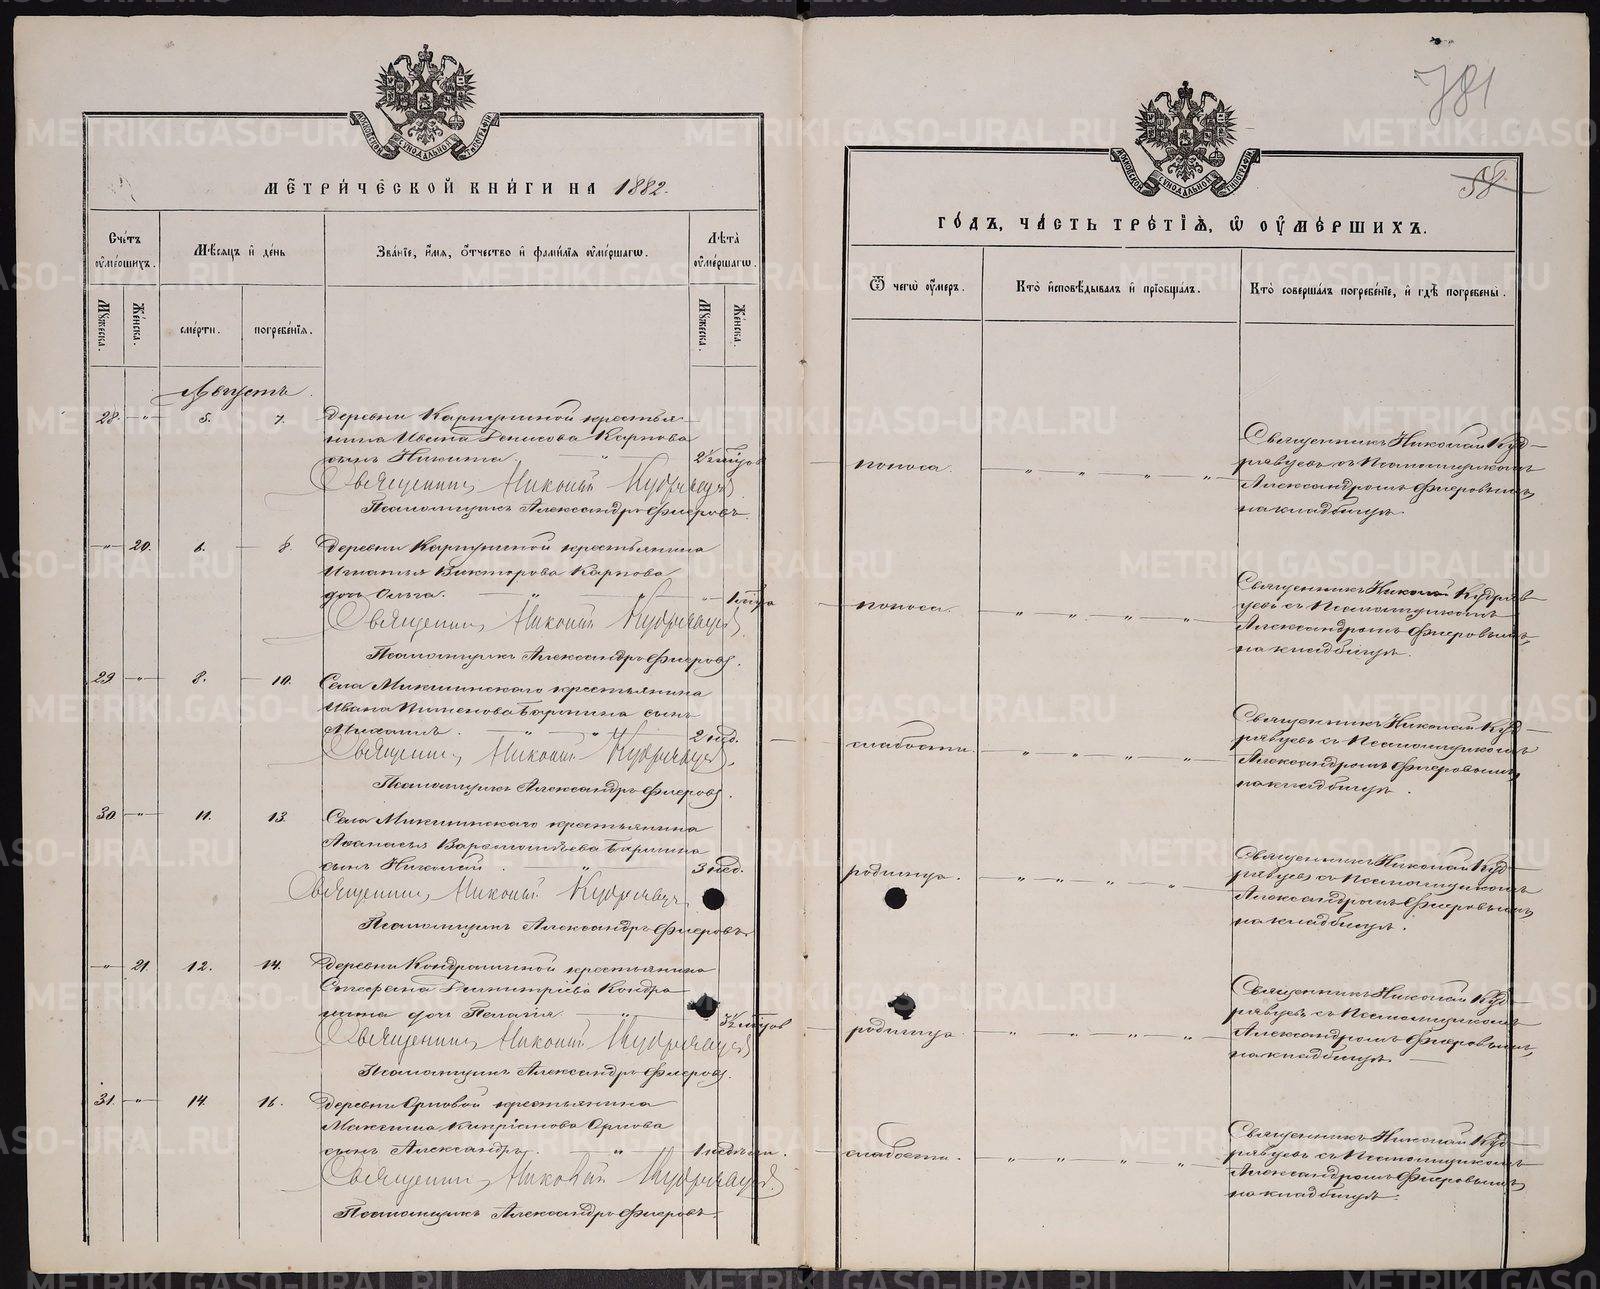 МЕТРИЧЕСКОЙ КНИГИ НА 1882.
Счетъ оумершихъ.
Мѣсяцъ и день
Званіе, имя, отчество и фамиліа оумершагѡ.
Лѣта оумершагѡ.
Мꙋжеска.
Женска.
смерти.
погребеніа.
Мꙋжеска.
Женска.
Августъ.
28. " 5. 7. Деревни Карпушиной крестья-
нина Ивана Денисова Карпова
сынъ Никита. " 2½ годов
Священникъ Николай Кудрявцев
Псаломщикъ Александръ Флеровъ.
" 20. 6. 8. Деревни Карпушиной крестьянина
Игнатья Викторова Карпова
дочь Ольга. " " " 1 года
Священникъ Николай Кудрявцев
Псаломщикъ Александръ Флеровъ.
29 " 8. 10. Села Микшинскаго крестьянина
Ивана Пименова сынъ
Михаилъ. " " 2 нед.
Священникъ Николай Кудрявцев
Псаломщикъ Александръ Флеровъ.
30. " 11. 13. Села Микшинскаго крестьянина
Афанасья Варфоломѣева
сынъ Николай. " 3 нед.
Священникъ Николай Кудрявцев
Псаломщикъ Александръ Флеровъ
" 21. 12. 14. Деревни Кондрашиной крестьянина
Стефана Димитріева Кондра
шина дочь Пелагія. "
Священникъ Николай Кудрявцев
Псаломщикъ Александръ Флеровъ.
31. " 14. 16. Деревни Орловой крестьянина
Максима Кипріанова Орлова
сынъ Александръ. " 1 недѣли.
Священникъ Николай Кудрявцев
Псаломщикъ Александръ Флеровъ.
781
58
ГОДЪ, ЧАСТЬ ТРЕТІѦ, Ѡ ОУМЕРШИХЪ.
Ѿ чегѡ оумеръ.
Кто исповѣдывалъ и пріобщалъ.
Кто совершалъ погребеніе, и гдѣ погребены.
поноса. " " " "
Священникъ Николай Куд-
рявцевъ съ Псаломщикомъ
Александромъ Флеровымъ
на кладбищѣ.
поноса. " " " "
Священникъ Николай Кудряв-
цевъ съ Псаломщикомъ
Александромъ Флеровымъ,
на кладбищѣ.
слабости " " " "
Священникъ Николай Куд-
рявцевъ съ Псаломщикомъ
Александромъ Флеровымъ
на кладбищѣ.
родимца. " " " "
Священникъ Николай Куд-
рявцевъ съ Псаломщикомъ
Александромъ Флеровымъ
на кладбищѣ.
родимца " " " "
Священникъ Николай Куд-
рявцевъ съ Псаломщикомъ
Александромъ Флеровымъ,
на кладбищѣ.
слабости. " " " "
Священникъ Николай Куд-
рявцевъ съ Псаломщикомъ
Александромъ Флеровымъ
на кладбищѣ.
METRIKI.GASO-URAL.RU